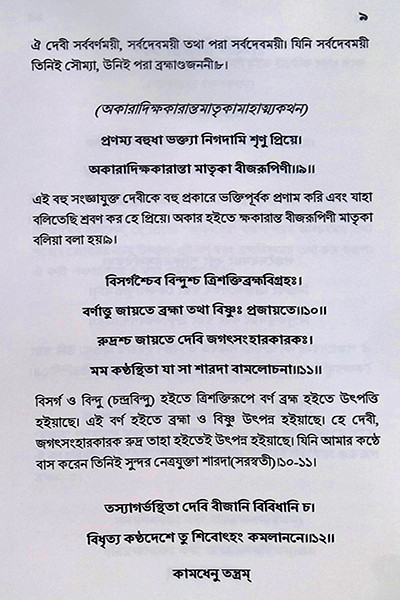 ৯
ঐ দেবী সর্ববর্ণময়ী, সর্বদেবময়ী তথা পরা সর্বদেবময়ী। যিনি সর্বদেবময়ী
তিনিই সৌম্যা, উনিই পরা ব্রহ্মাণ্ডজননী৮।
(অকারাদিক্ষকারান্তমাতৃকামাহাত্ম্যকথন)
প্রণম্য বহুধা ভক্ত্যা নিগদামি শৃণু প্রিয়ে।
অকারাদিক্ষকারান্তা মাতৃকা বীজরূপিণী॥৯॥
এই বহু সংজ্ঞাযুক্ত দেবীকে বহু প্রকারে ভক্তিপূর্বক প্রণাম করি এবং যাহা
বলিতেছি শ্রবণ কর হে প্রিয়ে। অকার হইতে ক্ষকারান্ত বীজরূপিণী মাতৃকা
বলিয়া বলা হয়৯।
বিসর্গশ্চৈব বিন্দুশ্চ ত্রিশক্তিব্রহ্মবিগ্রহঃ।
বর্ণাত্তু জায়তে ব্রহ্মা তথা বিষ্ণুঃ প্রজায়তে॥১০॥
রুদ্রশ্চ জায়তে দেবি জগৎসংহারকারকঃ।
মম কণ্ঠস্থিতা যা সা শারদা বামলোচনা॥১১॥
বিসর্গ ও বিন্দু (চন্দ্রবিন্দু) হইতে ত্রিশক্তিরূপে বর্ণ ব্রহ্ম হইতে উৎপত্তি
হইয়াছে। এই বর্ণ হইতে ব্রহ্মা ও বিষ্ণু উৎপন্ন হইয়াছে। হে দেবী,
জগৎসংহারকারক রুদ্র তাহা হইতেই উৎপন্ন হইয়াছে। যিনি আমার কণ্ঠে
বাস করেন তিনিই সুন্দর নেত্রযুক্তা শারদা(সরস্বতী)১০-১১।
তস্যাগর্ভস্থিতা দেবি বীজানি বিবিধানি চ।
বিধৃত্য কণ্ঠদেশে তু শিবোৎহং কমলাননে॥১২॥
কামধেনু তন্ত্রম্